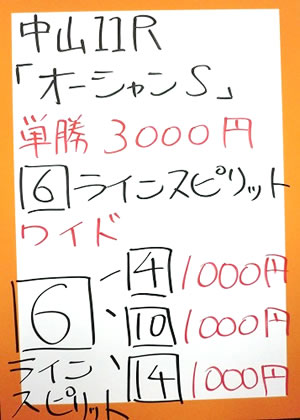 中山11R
「オーシャンS」
単勝3000円
6 ラインスピリット
ワイド
6 ー 4 1000円
、 10 1000円
ライン、 14 1000円
スピリット